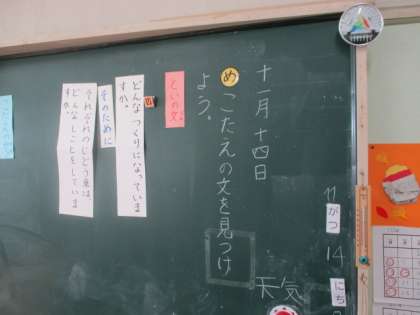 十一月十四日
めこたえの文を見つけ
よう。
といの文。
どんなつくりになっていま
すか。
そのために
それぞれのじどう車は
どんなしごとをしています
か。
11
がつ
14
にち
天気